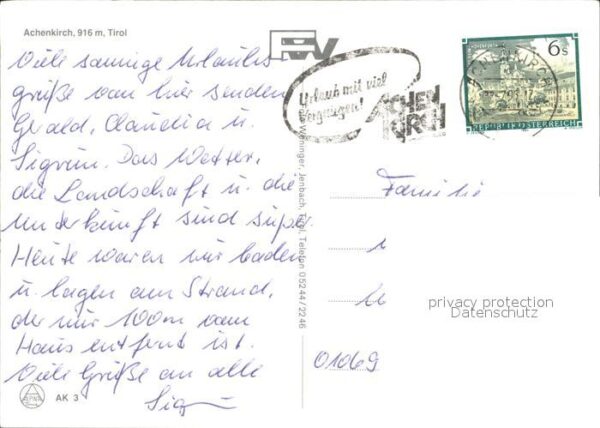 Achenkirch, 916 m, Tirol
Viele sonnige Urlaubs-
grüße von hier senden
Gerald, Claudia u.
Sigrun. Das Wetter,
die Landschaft u. die
Unterkunft sind super.
Heute waren wir baden
u. lagen am Strand,
der nur 100m vom
Haus entfernt ist.
Viele Grüße an alle
AK 3
Jenbach, Tirol, Telefon 05244/2246
Urlaub mit viel
Vergnügen!
ACHEN
KIRCH
6 S
REPUBLIK ÖSTERREICH
Familie
01069
privacy protection
Datenschutz